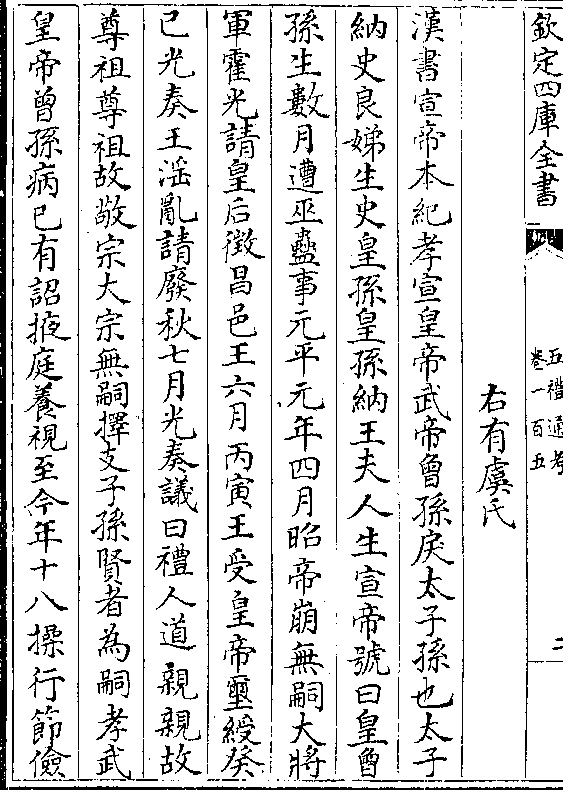 欽定四庫全書
五禮通考
卷一百五
二
右有虞氏
漢書宣帝本紀孝宣皇帝武帝曾孫戾太子孫也太子
納史良娣生史皇孫皇孫納王夫人生宣帝號曰皇曾
孫生數月遭巫蠱事元平元年四月昭帝崩無嗣大將
軍霍光請皇后徵昌邑王六月丙寅王受皇帝璽綬癸
已光奏王淫亂請廢秋七月光奏議曰禮人道親親故
尊祖尊祖故敬宗大宗無嗣擇支子孫賢者為嗣孝武
皇帝曾孫病已有詔掖庭養視至今年十八操行節儉